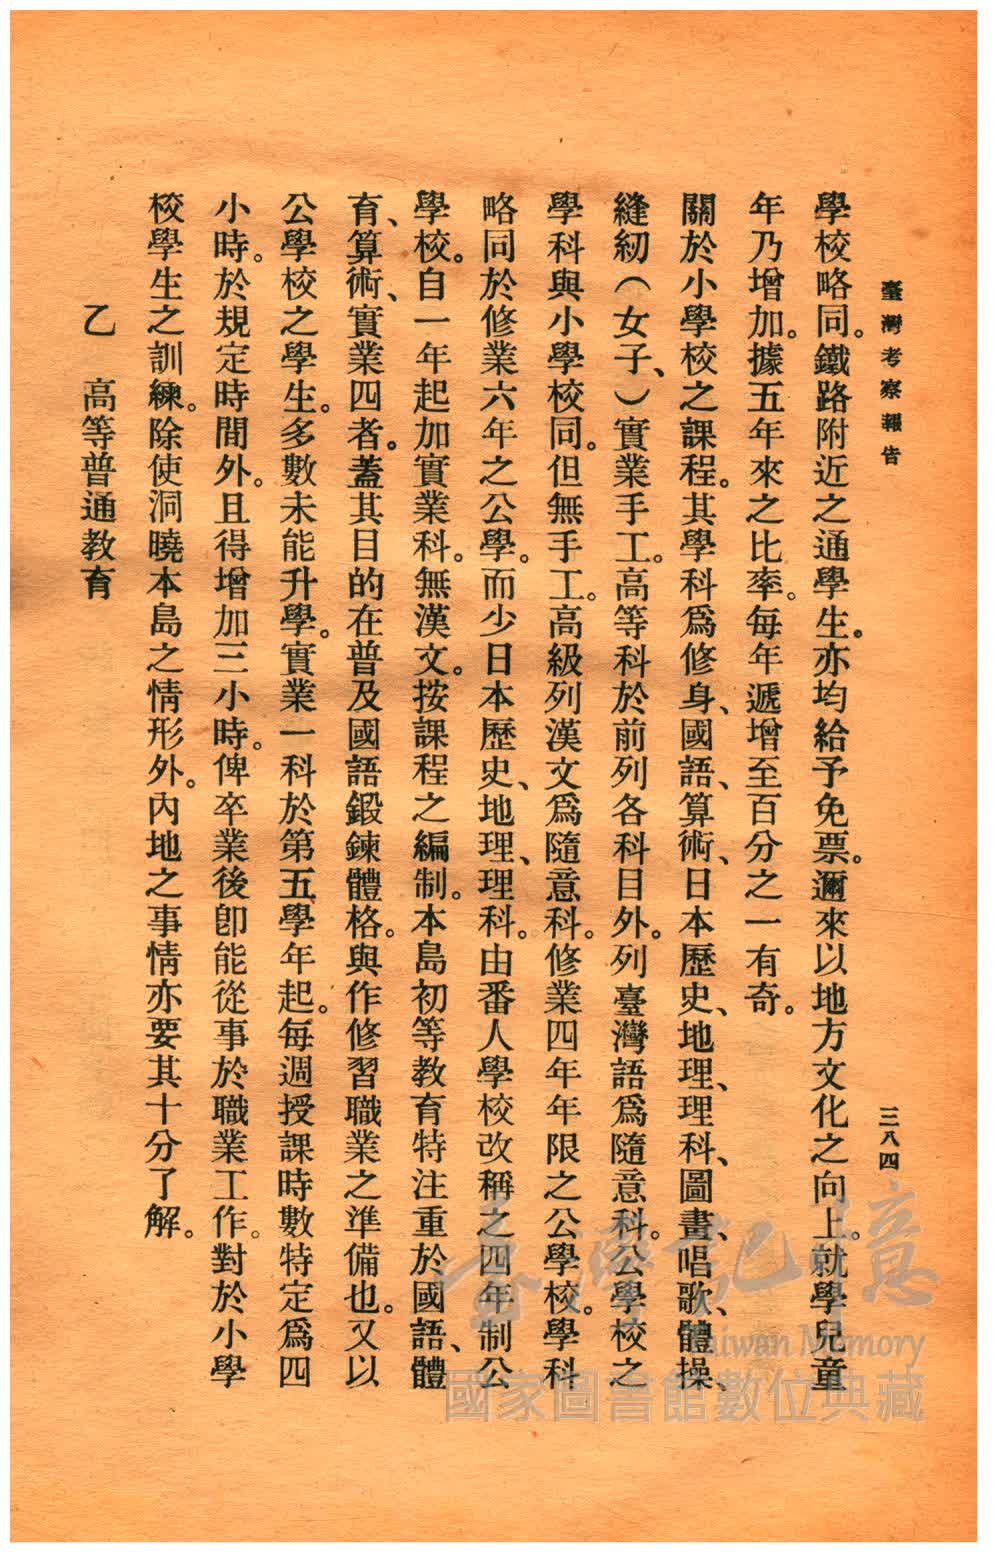 臺灣考察報告
三八四
學校略同。鐵路附近之通學生。亦均給予免票。邇來以地方文化之向上。就學兒童
年乃增加。據五年來之比率。每年遞增至百分之一有奇。
關於小學校之課程。其學科爲修身、國語、算術、日本歷史、地理、理科、圖畫、唱歌、體操、
縫紉（女子、）實業手工。高等科於前列各科目外。列臺灣語爲隨意科。公學校之
學科與小學校同。但無手工。高級列漢文爲隨意科。修業四年年限之公學校。學科
略同於修業六年之公學。而少日本歷史、地理、理科。由番人學校改稱之四年制公
學校。自一年起加實業科。無漢文。按課程之編制。本島初等教育特注重於國語、體
育、算術、實業四者。蓋其目的在普及國語鍛鍊體格。與作修習職業之準備也。又以
公學校之學生。多數未能升學。實業一科於第五學年起。每週授課時數特定爲四
小時。於規定時間外。且得增加三小時。俾卒業後卽能從事於職業工作。對於小學
校學生之訓練。除使洞曉本島之情形外。內地之事情亦要其十分了解。
乙　高等普通教育
臺灣記憶
Taiwan Memory
國家圖書館數位典藏